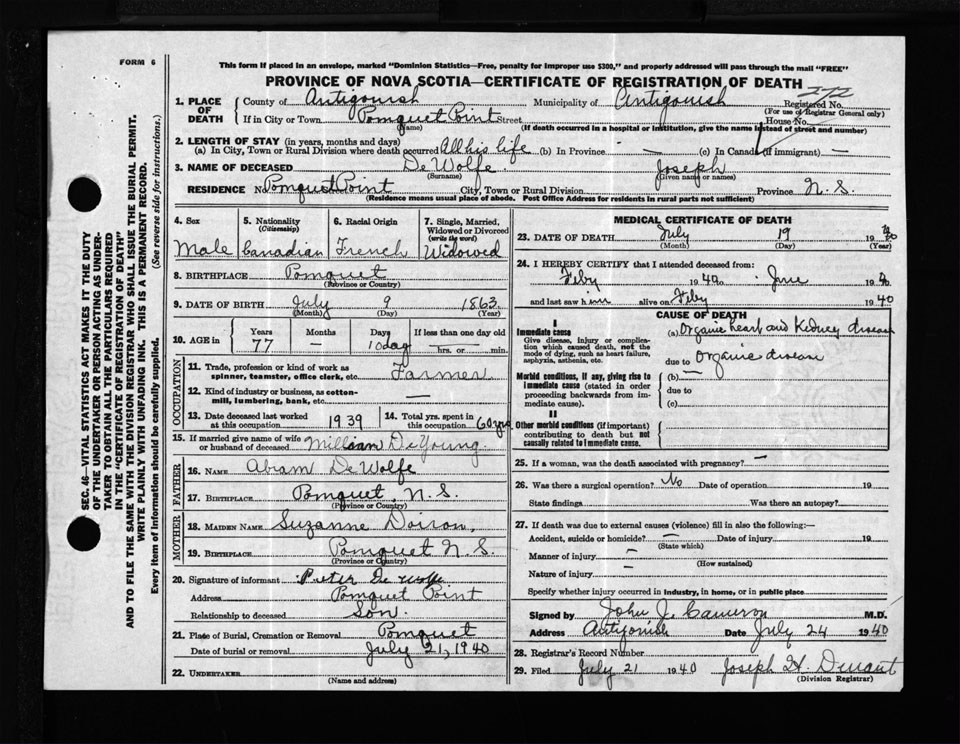 FORM 6
This form if placed in an envelope, marked "Dominion Statistics—Free, penalty for improper use $300," and properly addressed will pass through the mail "FREE"
PROVINCE OF NOVA SCOTIA—CERTIFICATE OF REGISTRATION OF DEATH
272
1. PLACE OF DEATH County of Antigonish Municipality of Antigonish Registered No.
(For use of Registrar General only)
If in City or Town Pomquet Point Street House No.
(Name) (If death occurred in a hospital or institution, give the name instead of street and number)
2. LENGTH OF STAY (in years, months and days)
(a) In City, Town or Rural Division where death occurred All his life (b) In Province — (c) In Canada (if immigrant) —
3. NAME OF DECEASED De Wolfe Joseph
(Surname) (Given name or names)
RESIDENCE No. Pomquet Point City, Town or Rural Division Province N.S.
(Residence means usual place of abode. Post Office Address for residents in rural parts not sufficient)
SEC. 46—VITAL STATISTICS ACT MAKES IT THE DUTY
OF THE UNDERTAKER OR PERSON ACTING AS UNDER-
TAKER TO OBTAIN ALL THE PARTICULARS REQUIRED
IN THE "CERTIFICATE OF REGISTRATION OF DEATH"
AND TO FILE THE SAME WITH THE DIVISION REGISTRAR WHO SHALL ISSUE THE BURIAL PERMIT.
WRITE PLAINLY WITH UNFADING INK. THIS IS A PERMANENT RECORD.
Every item of Information should be carefully supplied. (See reverse side for instructions.)
4. Sex 5. Nationality (Citizenship) 6. Racial Origin 7. Single, Married, Widowed or Divorced (write the word)
Male Canadian French Widowed
8. BIRTHPLACE Pomquet
(Province or Country)
9. DATE OF BIRTH July 9 1863
(Month) (Day) (Year)
10. AGE in Years Months Days If less than one day old
77 — 10 day hrs. or min.
OCCUPATION
11. Trade, profession or kind of work as spinner, teamster, office clerk, etc. Farmer
12. Kind of industry or business, as cotton-mill, lumbering, bank, etc. —
13. Date deceased last worked at this occupation 1939 14. Total yrs. spent in this occupation 60 yrs
15. If married give name of wife or husband of deceased DeYoung
FATHER
16. NAME Abram De Wolfe
17. BIRTHPLACE Pomquet, N.S.
(Province or Country)
MOTHER
18. MAIDEN NAME Suzanne Doiron,
19. BIRTHPLACE Pomquet N.S.
(Province or Country)
20. Signature of informant Peter De Wolfe
Address Pomquet Point
Relationship to deceased Son.
21. Place of Burial, Cremation or Removal Pomquet
Date of burial or removal July 21, 1940
22. UNDERTAKER
(Name and address)
MEDICAL CERTIFICATE OF DEATH
23. DATE OF DEATH July 19
(Month) (Day) (Year)
24. I HEREBY CERTIFY that I attended deceased from:
Feby 1940 June 19
and last saw him alive on Feby 1940
CAUSE OF DEATH
I
Immediate cause (a) Organic heart and Kidney disease
Give disease, injury or complication which caused death, not the mode of dying, such as heart failure, asphyxia, asthenia, etc.
due to Organic disease
Morbid conditions, if any, giving rise to immediate cause (stated in order proceeding backwards from immediate cause). (b) —
due to
(c)
II
Other morbid conditions (if important) contributing to death but not causally related to immediate cause.
25. If a woman, was the death associated with pregnancy? —
26. Was there a surgical operation? No Date of operation 19
State findings Was there an autopsy?
27. If death was due to external causes (violence) fill in also the following:—
Accident, suicide or homicide? — Date of injury 19
(State which)
Manner of injury —
(How sustained)
Nature of injury —
Specify whether injury occurred in industry, in home, or in public place
Signed by John J. Cameron M.D.
Address Antigonish Date July 24 1940
28. Registrar's Record Number
29. Filed July 21 1940 Joseph H.
(Division Registrar)